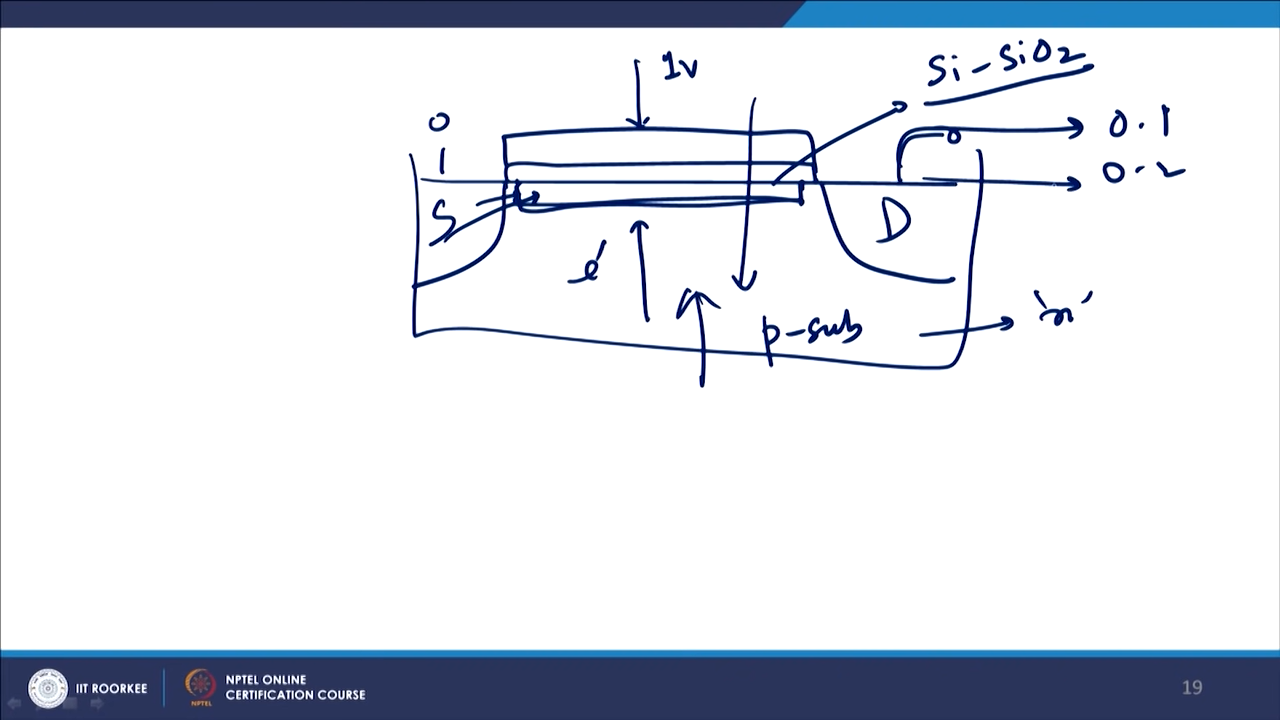 1v
Si-SiO2
0
0.1
1
0.2
S
D
e'
p-sub
'n'
IIT ROORKEE
NPTEL ONLINE
CERTIFICATION COURSE
NPTEL
19